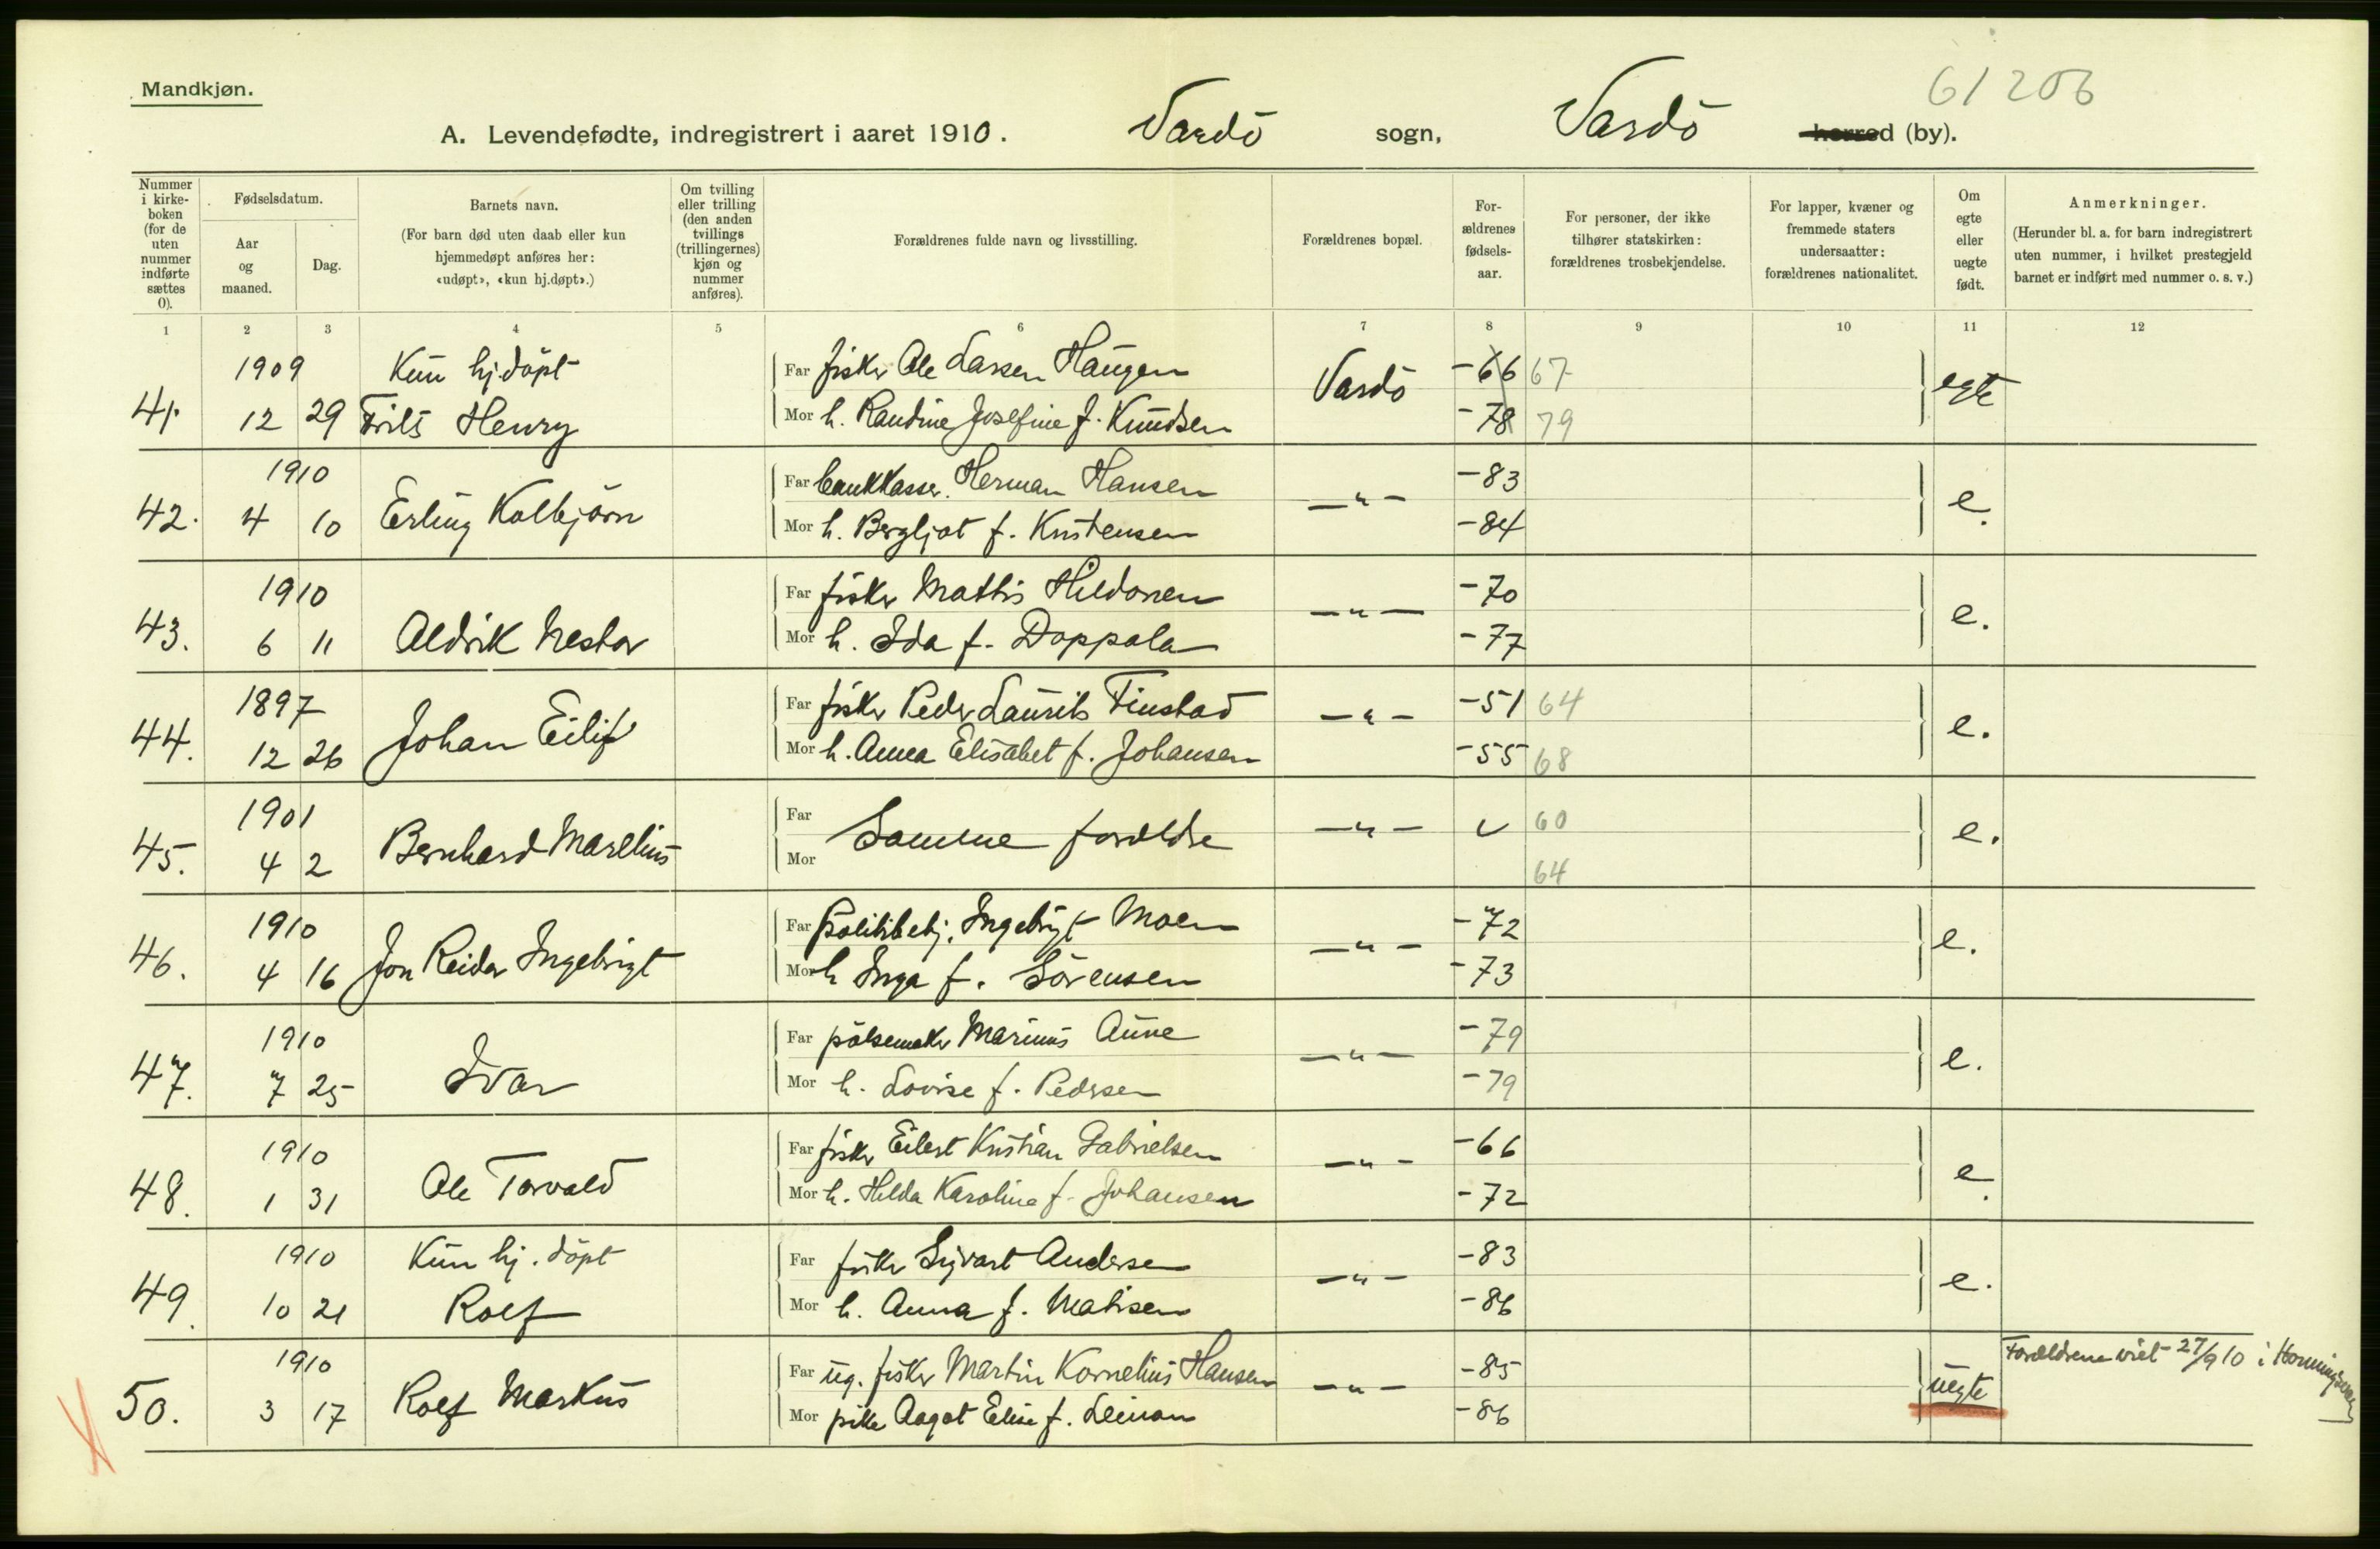 Mandkjøn.
61 206
A. Levendefødte, indregistrert i aaret 1910. Vardö sogn, Vardö herred (by).
Nummer i kirke-boken (for de uten nummer indførte sættes 0).
Fødselsdatum.
Aar og maaned.
Dag.
Barnets navn.
(For barn død uten daab eller kun hjemmedøpt anføres her: «udøpt», «kun hj.døpt».)
Om tvilling eller trilling (den anden tvillings (trillingernes) kjøn og nummer anføres).
Forældrenes fulde navn og livsstilling.
Forældrenes bopæl.
For-ældrenes fødsels-aar.
For personer, der ikke tilhører statskirken: forældrenes trosbekjendelse.
For lapper, kvæner og fremmede staters undersaatter: forældrenes nationalitet.
Om egte eller uegte født.
Anmerkninger.
(Herunder bl. a. for barn indregistrert uten nummer, i hvilket prestegjeld barnet er indført med nummer o. s. v.)
1 2 3 4 5 6 7 8 9 10 11 12
1909 Kun hj.döpt Far fisker Ole Larsen Haugen Vardö -66 67 egte
41. 12 29 Frits Henry Mor h. Randine Josefine f. Knudsen -78 79
1910 Far bankkasser. Herman Hansen -83
42. 4 10 Erling Kolbjörn Mor h. Bergljot f. Kristensen —"— -84 e.
1910 Far fisker Mathis Hildonen -70
43. 6 11 Aldrik Nestor Mor h. Ida f. Doppala —"— -77 e.
1897 Far fisker Peder Laurits Finstad -51 64
44. 12 26 Johan Eilif Mor h. Anna Elisabet f. Johansen —"— -55 68 e.
1901 Far Samme forældre —"— 60
45. 4 2 Bernhard Marelius Mor 64 e.
1910 Far Politibetj. Ingebrigt Moen -72
46. 4 16 Jon Reidar Ingebrigt Mor h Inga f. Sörensen —"— -73 e.
1910 Far pölsemaker Marius Aune -79
47. 7 25 Ivar Mor h. Lovise f. Pedersen —"— -79 e.
1910 Far fisker Eilert Kristian Gabrielsen -66
48. 1 31 Ole Torvald Mor h. Hilda Karoline f. Johansen —"— -72 e.
1910 Kun hj. döpt Far fisker Sigvart Andersen -83
49. 10 21 Rolf Mor h. Anna f. Matisen —"— -86 e.
1910 Far ug. fisker Martin Kornelius Hansen -85 Forældrene viet 27/9 10 i Honningsvaag
50. 3 17 Rolf Markus Mor pike Aagot Eline f. Leinan —"— -86 uegte